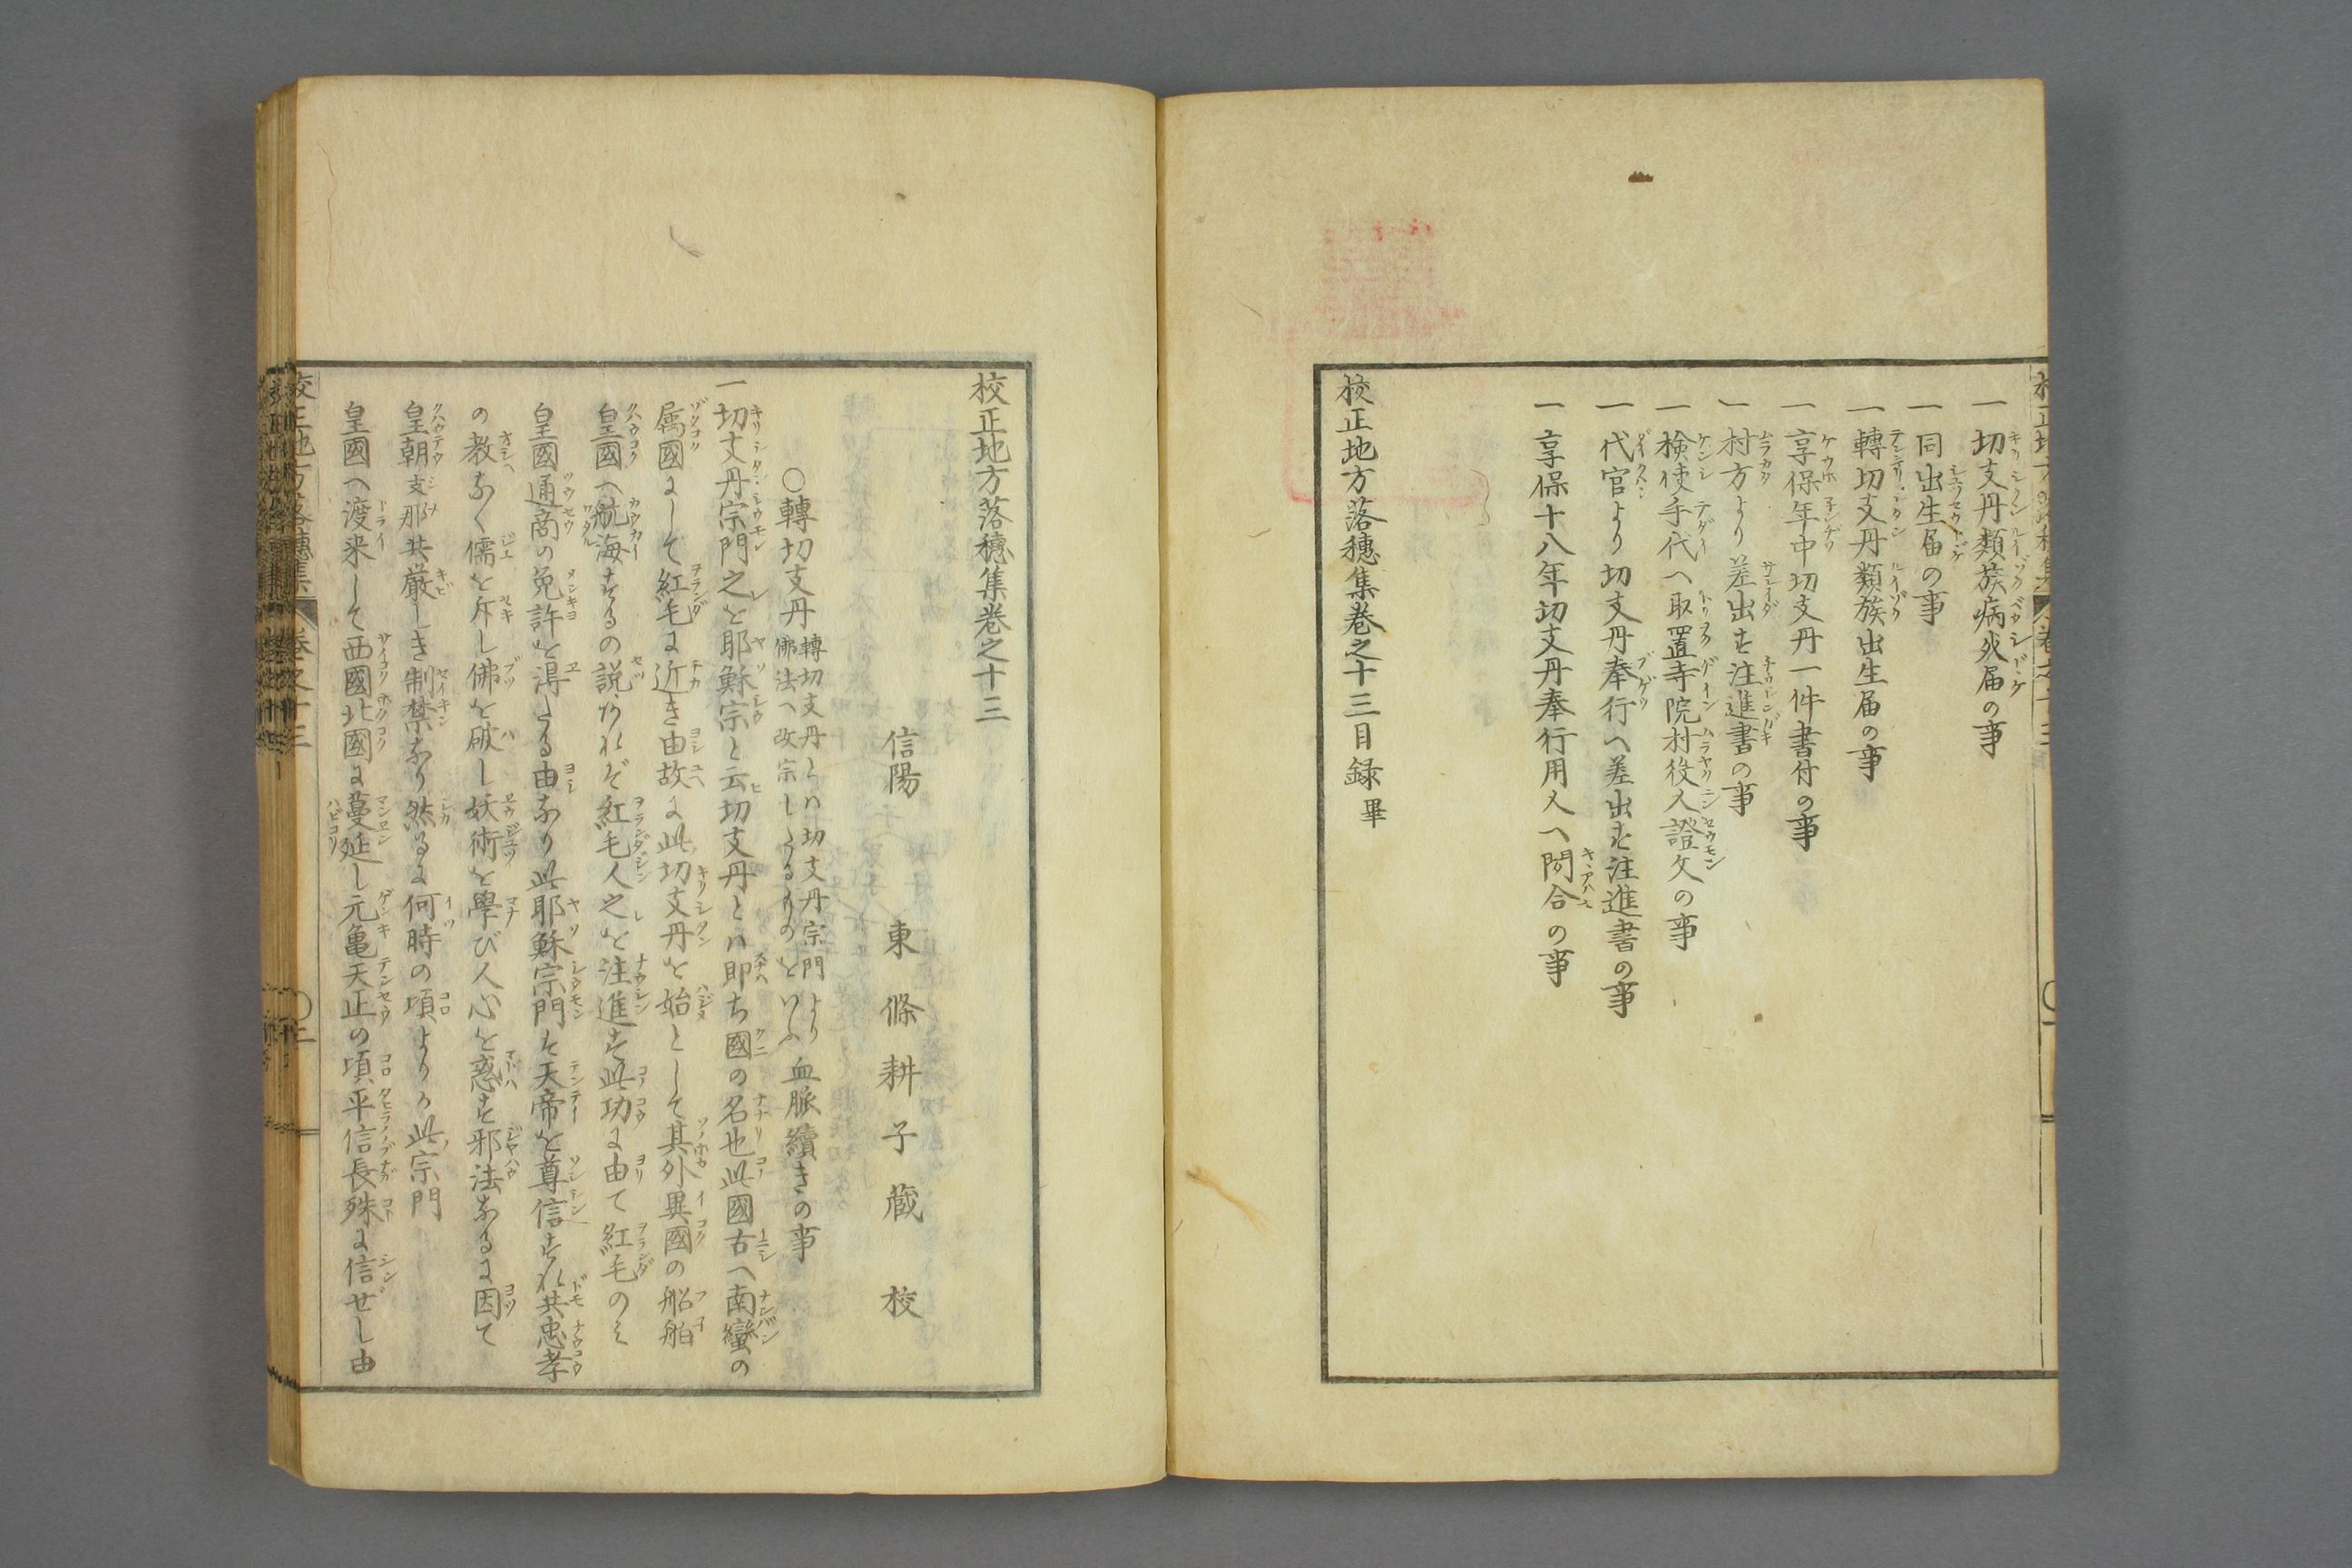 一切支丹類族病死届の事
一同出生届の事
一轉切支丹類族出生届の事
一享保年中切支丹一件書付の事
一村方より差出す注進書の事
一検使手代へ取置寺院村役人證文の事
一代官より切支丹奉行へ差出す注進書の事
一享保十八年切支丹奉行用人へ問合の事
校正地方落穗集巻之十三目録畢
校正地方落穗集巻之十三
信陽 東條耕子蔵校
○轉切支丹轉切支丹とハ切支丹宗門より佛法へ改宗したるものをいふ血脈續きの事
一切支丹宗門之を耶穌宗と云切支丹とハ即ち國の名也此國古へ南蠻の
属國にして紅毛に近き由故に此切支丹を始として其外異國の船舶
皇國へ航海するの説あれバ紅毛人之を注進す此功に由て紅毛のミ
皇國通商の免許を得たる由なり此耶穌宗門は天帝を尊信すれ共忠孝
の教なく儒を斥し佛を破し妖術を學び人心を惑す邪法なるに因て
皇朝支那共厳しき制禁なり然るに何時の頃よりか此宗門
皇國へ渡来して西國北國に蔓延し元亀天正の頃平信長殊に信ぜし由